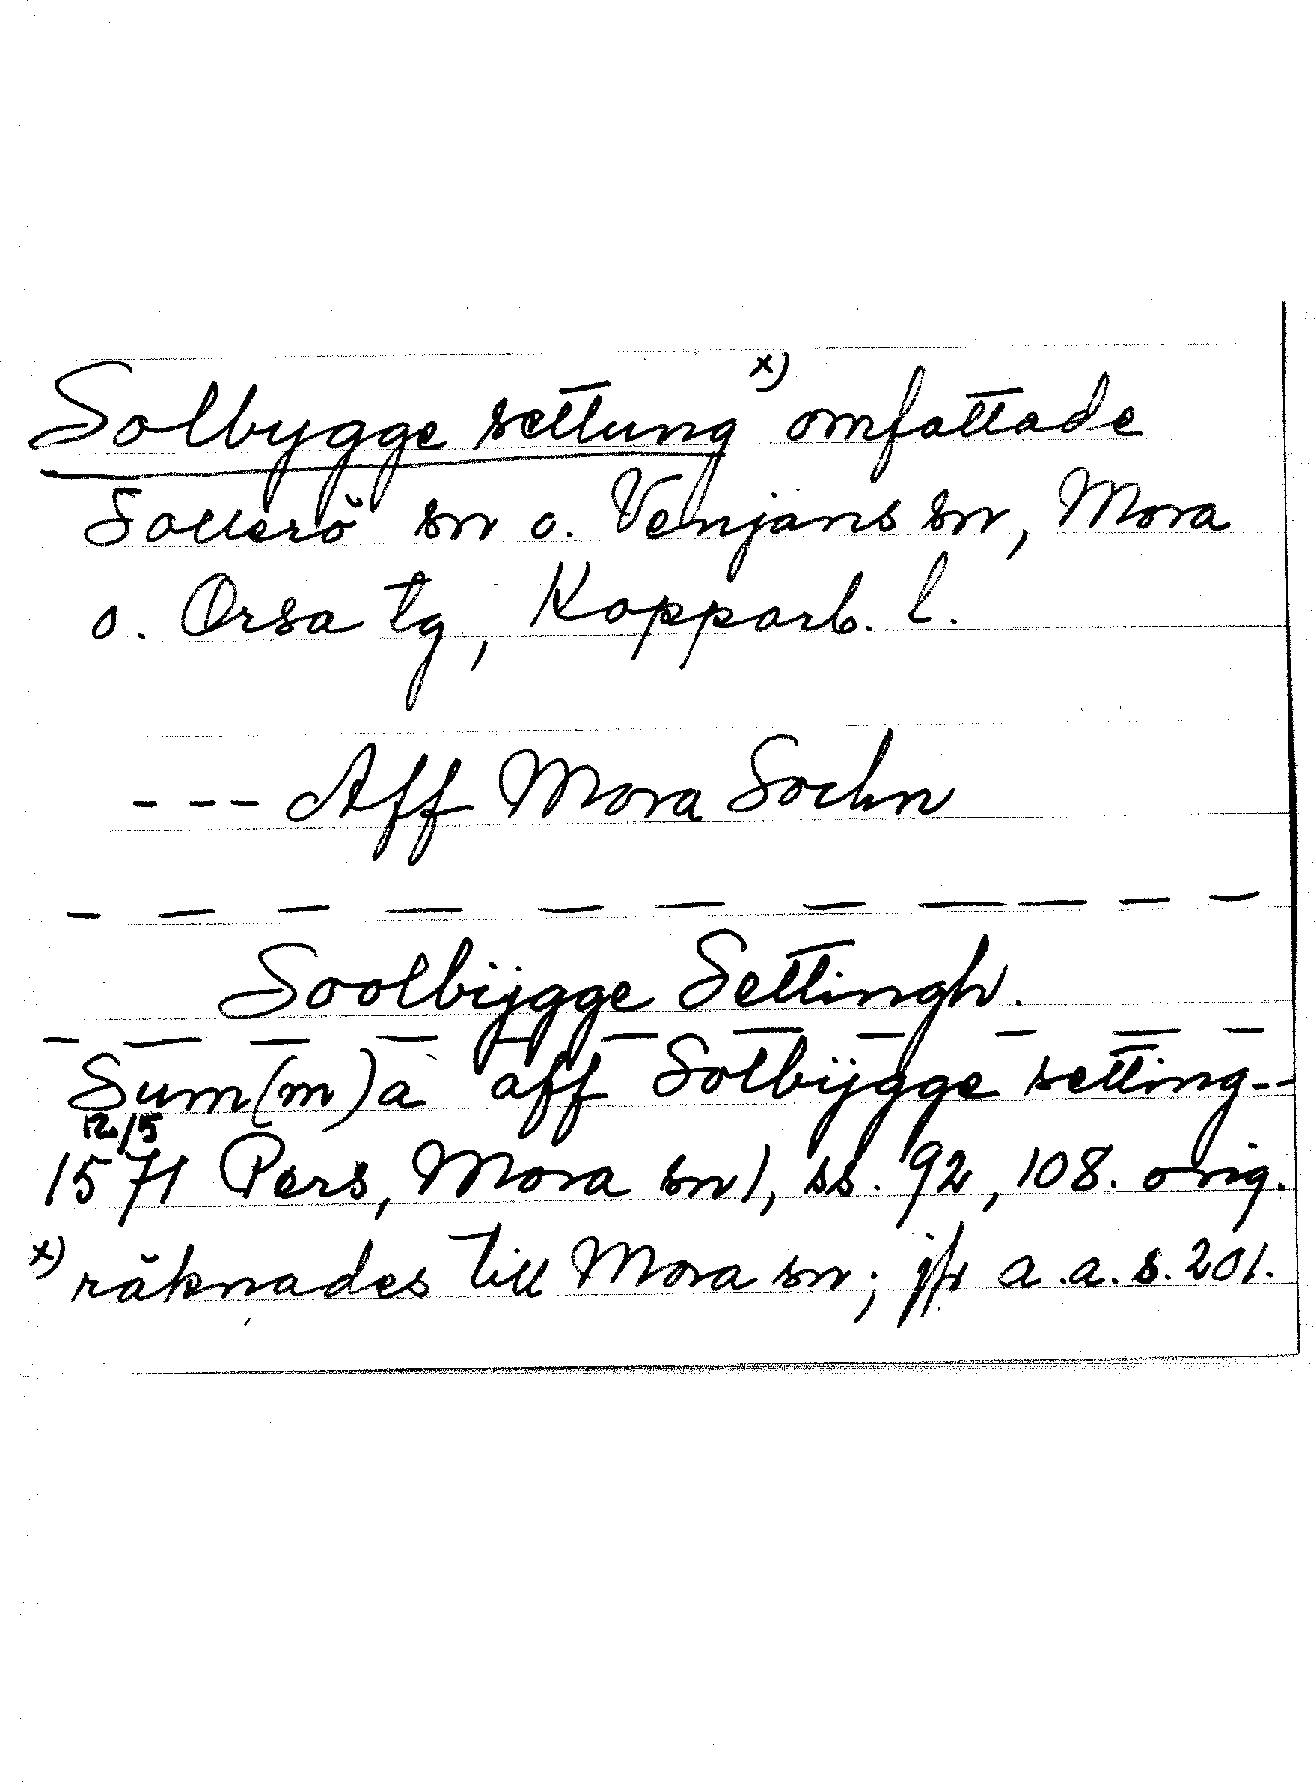 Solbygge settung x) omfattade
Sollerö sn o. Venjans sn, Mora
o. Orsa tg, Kopparb. l.
--- Aff Mora Sochn
— — — — — — — — — — —
Soolbijgge Settingh.
— — — — — — — — — — —
Sum(m)a aff Solbijgge setting--
12/5
1571 Pers, Mora sn), ss. 92, 108. orig.
x) räknades till Mora sn; jfr a.a.s. 201.